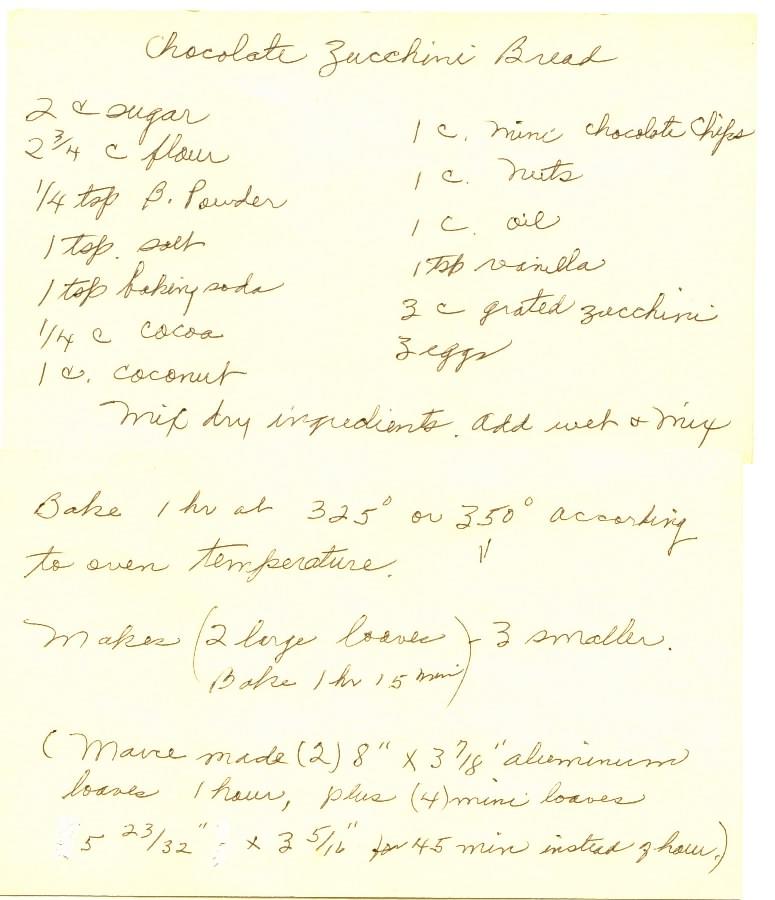 Chocolate Zucchini Bread
2 c sugar
2 3/4 c flour
1/4 tsp B. Powder
1 tsp. salt
1 tsp baking soda
1/4 c cocoa
1 c. coconut
1 c. mini chocolate chips
1 c. nuts
1 c. oil
1 tsp vanilla
3 c grated zucchini
3 eggs
Mix dry ingredients. Add wet & Mix
Bake 1 hr at 325° or 350° according
to oven temperature.
Makes (2 large loaves) - 3 smaller.
Bake 1 hr 15 min
( made (2) 8" X 3 7/8" aluminum
loaves 1 hour, plus (4) mini loaves
5 23/32" x 3 5/16" for 45 min instead of hour.)